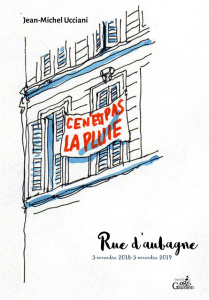 Jean-Michel Ucciani
CE N'EST PAS
LA PLUIE
Rue d'aubagne
5 novembre 2018-5 novembre 2019